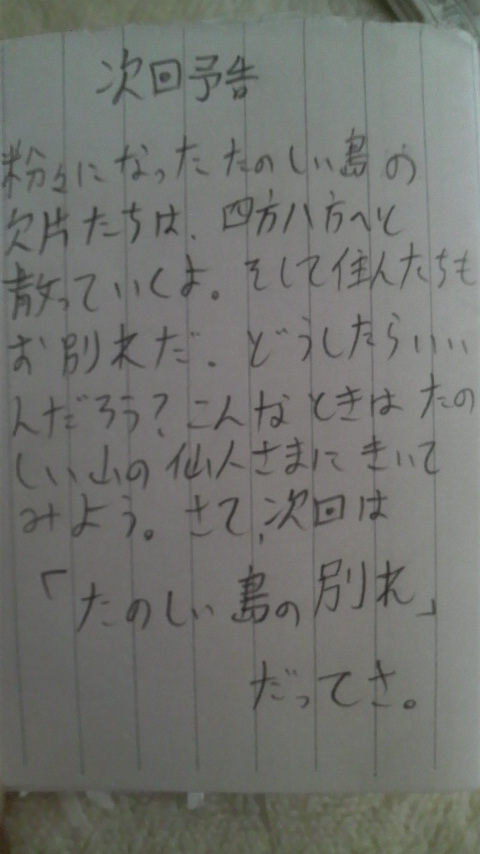 次回予告
粉々になったたのしい島の
欠片たちは、四方八方へと
散っていくよ。そして住人たちも
お別れだ。どうしたらいい
んだろう?こんなときはたの
しい山の仙人さまにきいて
みよう。さて、次回は
「たのしい島の別れ」
だってさ。